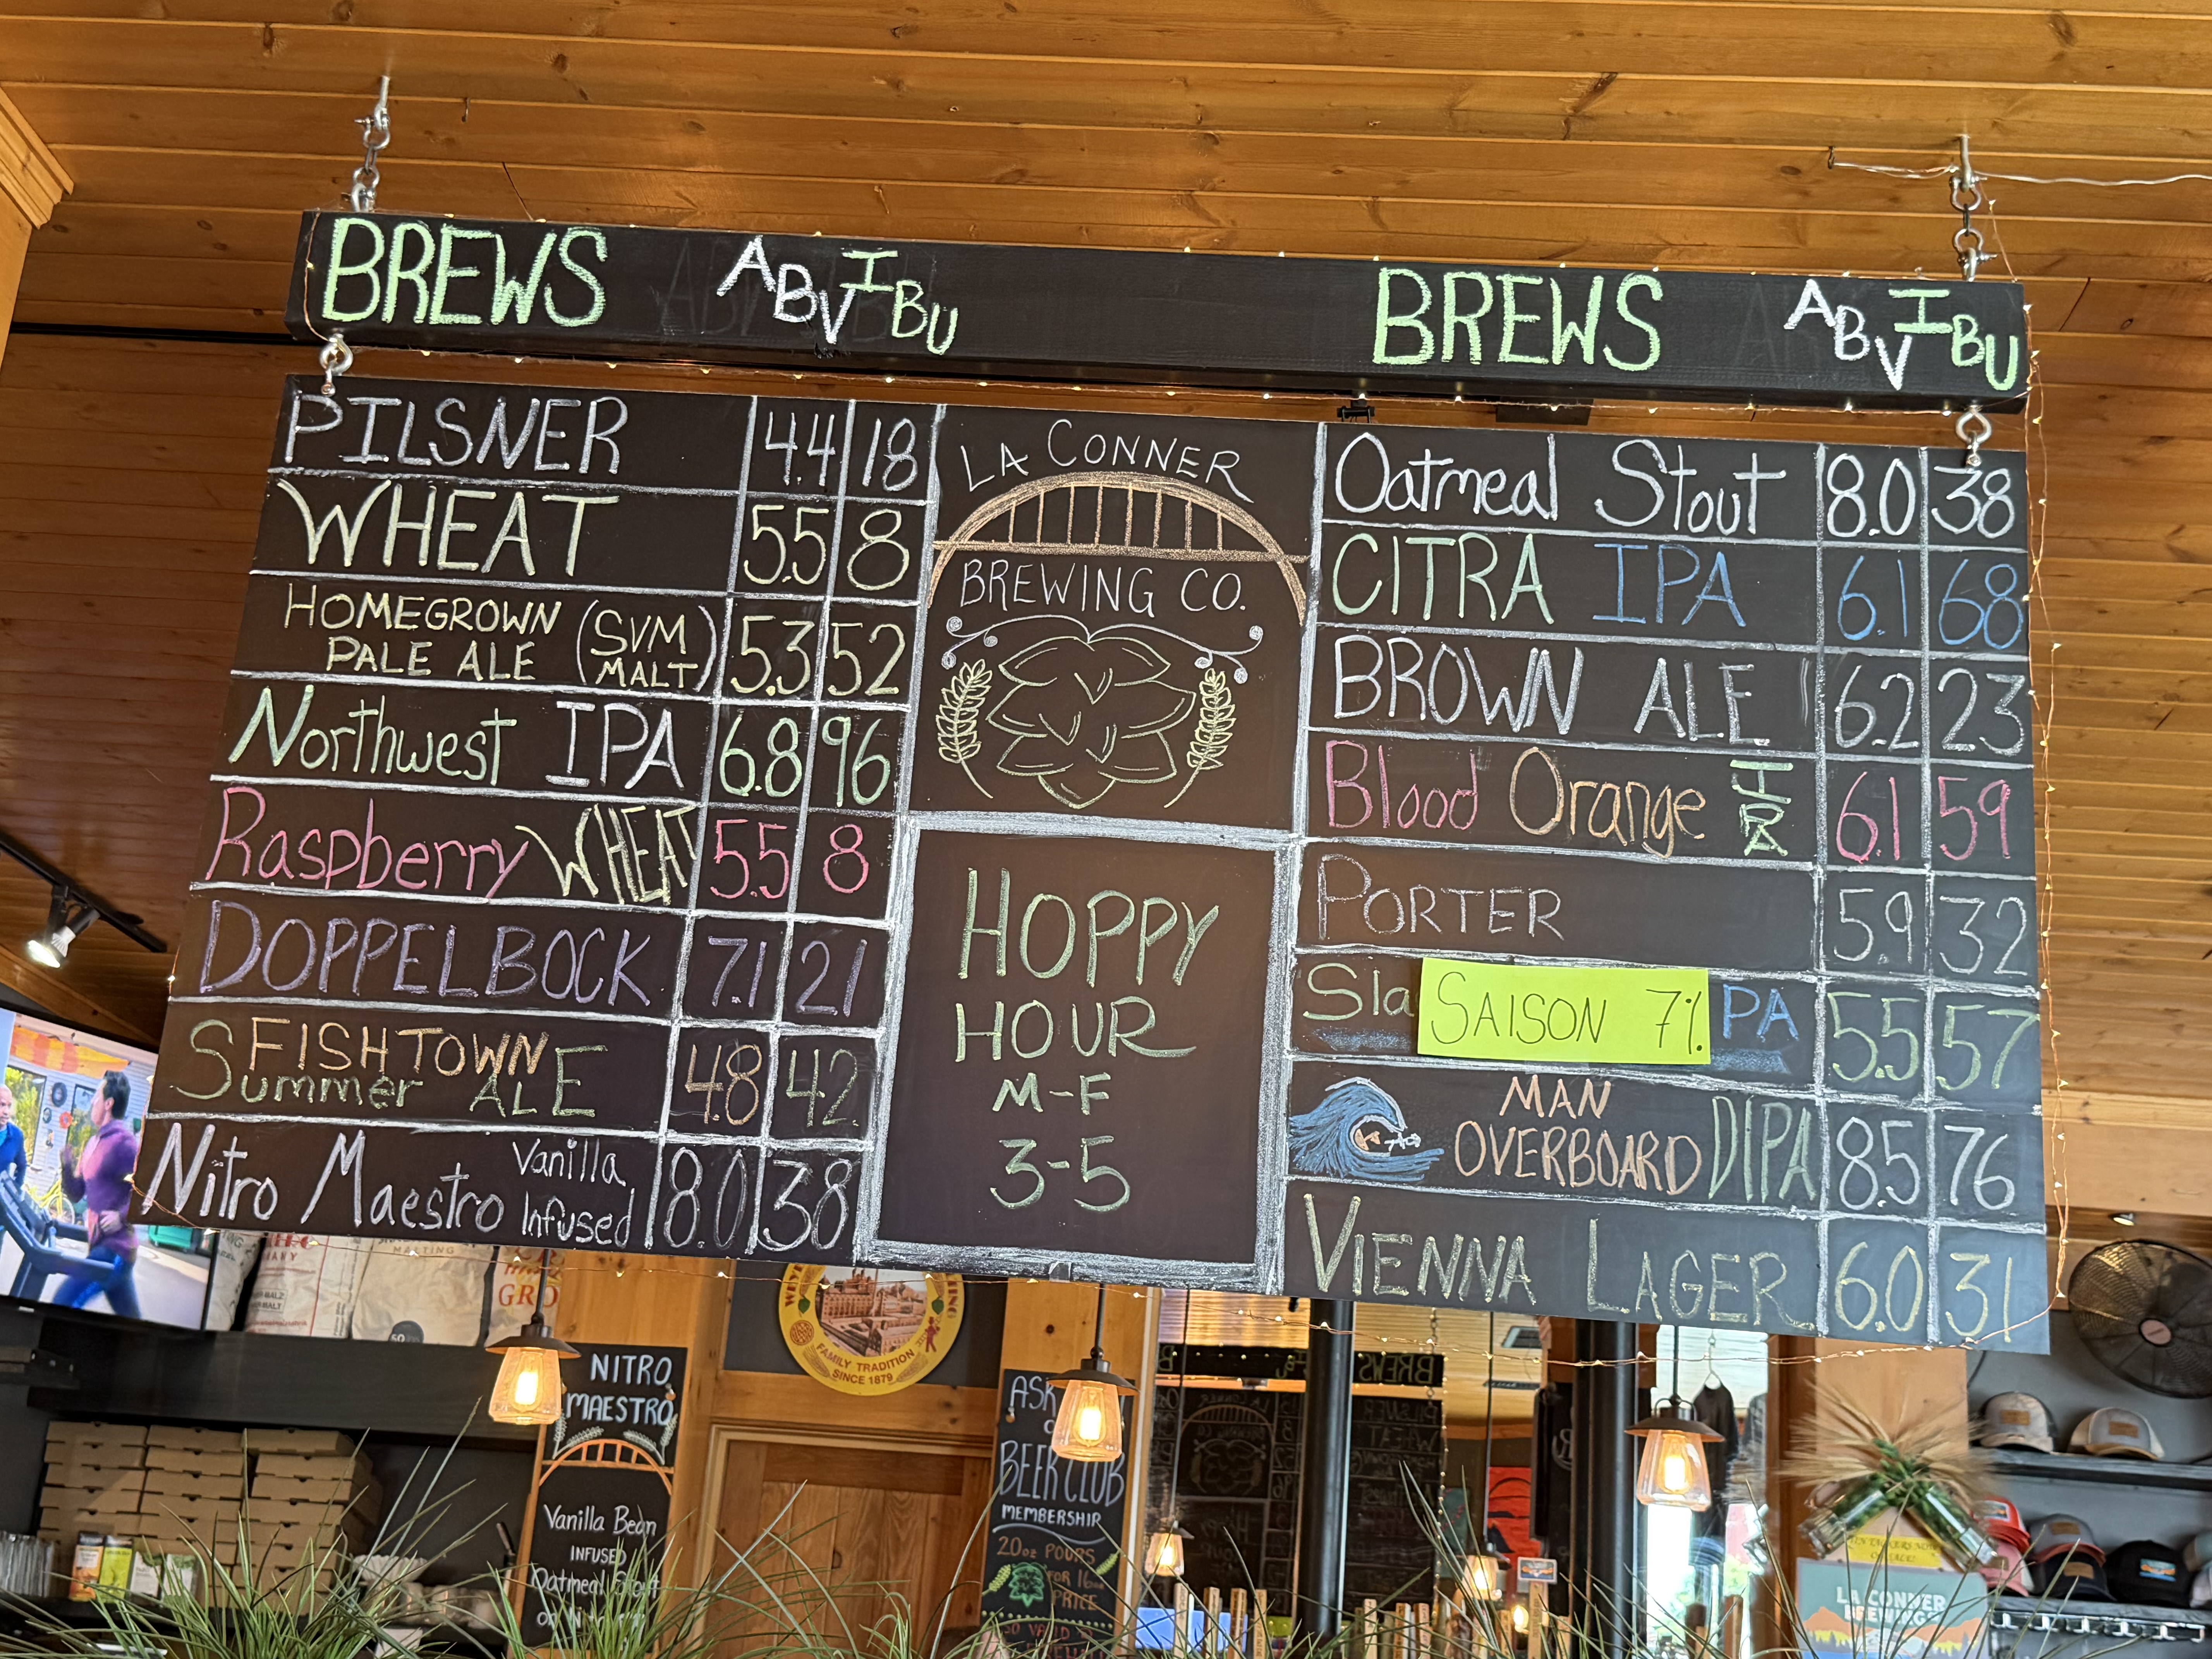 BREWS ABV IBU
BREWS ABV IBU
PILSNER 4.4 18
WHEAT 5.5 8
HOMEGROWN PALE ALE (SVM MALT) 5.3 52
Northwest IPA 6.8 96
Raspberry WHEAT 5.5 8
DOPPELBOCK 7.1 21
FISHTOWN
Summer ALE 4.8 42
Nitro Maestro Vanilla Infused 8.0 38
LA CONNER
BREWING CO.
HOPPY
HOUR
M-F
3-5
Oatmeal Stout 8.0 38
CITRA IPA 6.1 68
BROWN ALE 6.2 23
Blood Orange IPA 6.1 59
PORTER 5.9 32
Sla SAISON 7% PA 5.5 57
MAN
OVERBOARD DIPA 8.5 76
VIENNA LAGER 6.0 31
MALTING
GRO
FAMILY TRADITION
SINCE 1879
NITRO
MAESTRO
Vanilla Bean
INFUSED
Oatmeal Stout
ASK
BEER CLUB
MEMBERSHIP
20oz POURS
FOR 16oz
PRICE
LA CONNER
BREWING